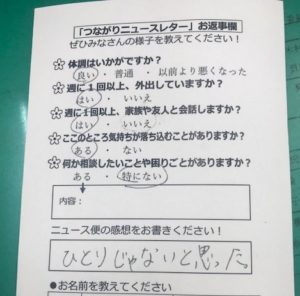 「つながりニュースレター」お返事欄
ぜひみなさんの様子を教えてください！
☆体調はいかがですか？
良い・普通・以前より悪くなった
☆週に1回以上、外出していますか？
はい・いいえ
☆週に1回以上、家族や友人と会話しますか？
はい・いいえ
☆ここのところ気持ちが落ち込むことがありますか？
ある・ない
☆何か相談したいことや困りごとがありますか？
ある・特にない
内容：
ニュース便の感想をお書きください！
ひとりじゃないと思った
●お名前を教えてください